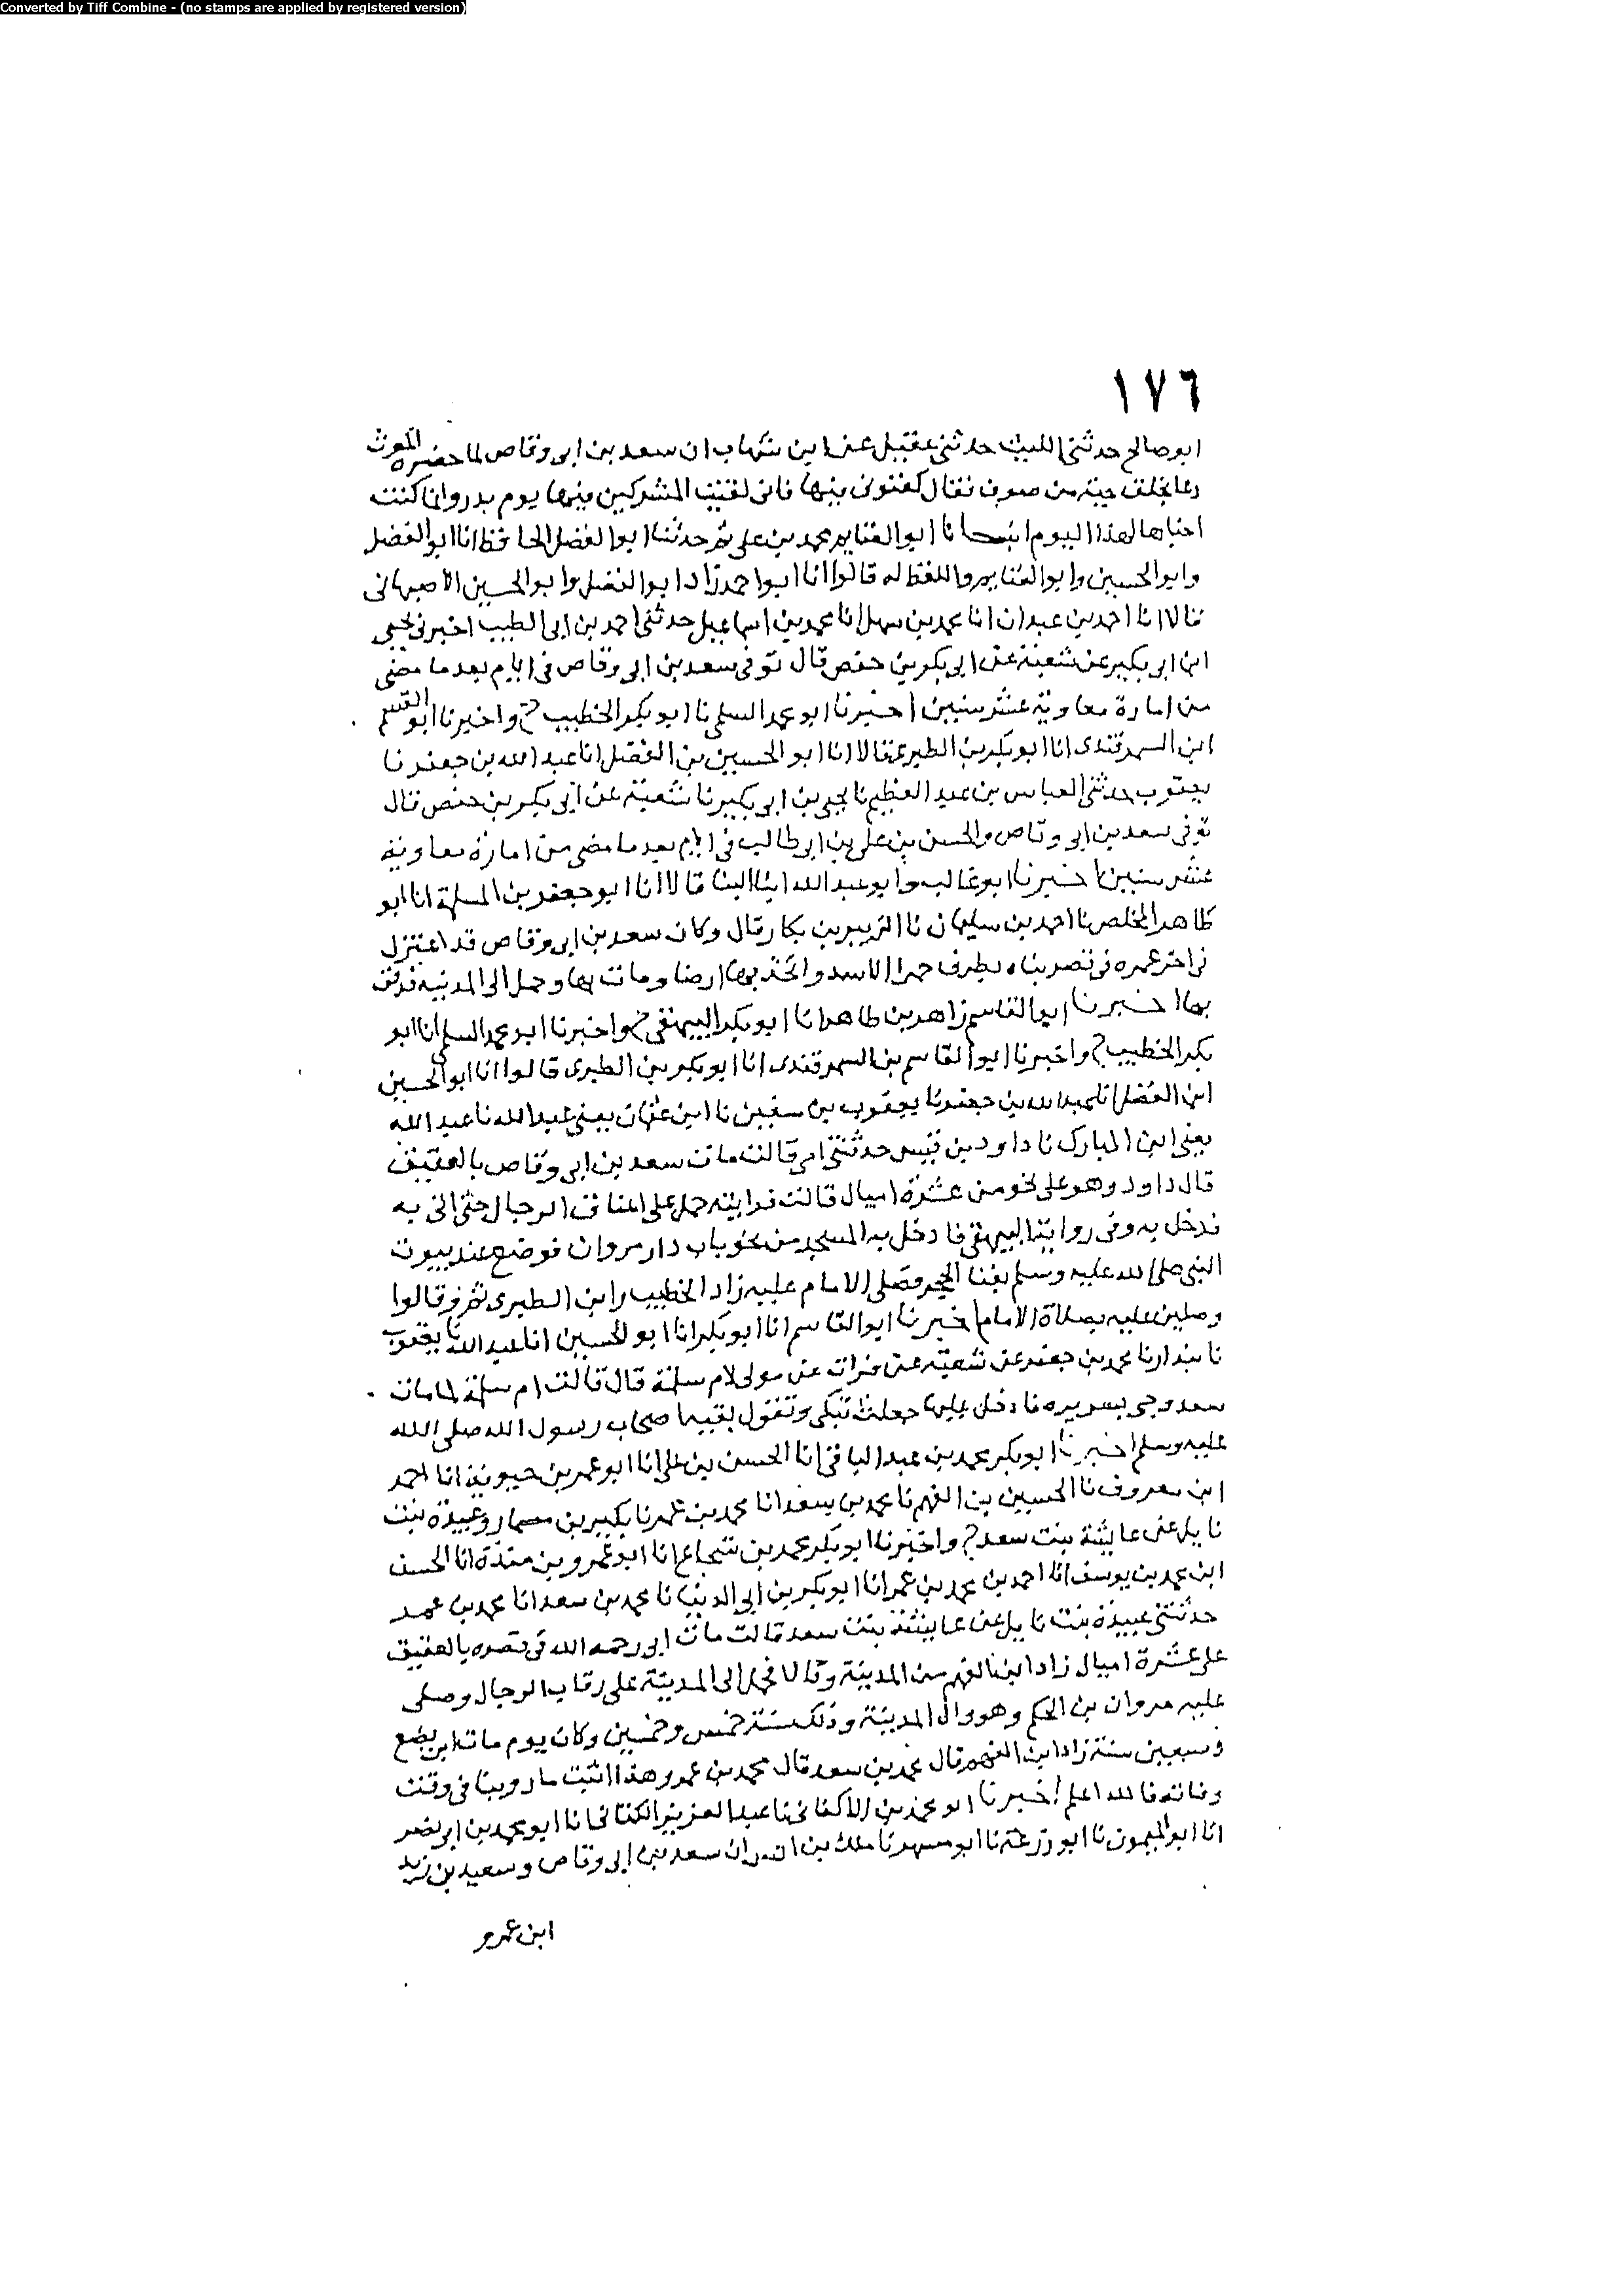 Converted by Tiff Combine - (no stamps are applied by registered version)
١٧٦
ابو صالح حدثنى الليث حدثنى عقيل عن ابن شهاب ان سعد بن ابى وقاص لما حضره الموت
دعا بخلق جبة من صوف فقال كفنونى فيها فانى لقيت المشركين فيها يوم بدر وانما كنت
اخباها لهذا اليوم انبـانا ابو الغنايم محمد بن على ثم حدثنا ابو الفضل الحافظ انا ابو الفضل
وابو الحسين وابو الغنايم واللفظ له قالوا انا ابو احمد زاد ابو الفضل وابو الحسين الاصبهانى
قالا انا احمد بن عبدان انا محمد بن سهل انا محمد بن اسماعيل حدثنى احمد بن ابى الطيب اخبرنى يحيى
ابن ابى بكير عن شعبة عن ابى بكر بن حفص قال توفى سعد بن ابى وقاص فى ايام بعد ما مضى
من امارة معاوية عشر سنين اخبرنا ابو محمد السلمى نا ابو بكر الخطيب ح واخبرنا ابو القسم
ابن السمرقندى انا ابو بكر بن الطبرى قالا انا ابو الحسين بن الفضل انا عبد الله بن جعفر نا
يعقوب حدثنى العباس بن عبد العظيم نا يحيى بن ابى بكير نا شعبة عن ابى بكر بن حفص قال
توفى سعد بن ابى وقاص والحسن بن على بن ابى طالب فى ايام بعد ما مضى من امارة معاوية
عشر سنين اخبرنا ابو غالب وابو عبد الله ابنا البنا قالا انا ابو جعفر بن المسلمة انا ابو
طاهر المخلص نا احمد بن سليمان نا الزبير بن بكار قال وكان سعد بن ابى وقاص قد اعتزل
فى اخر عمره فى قصر بناه بطرف حمرا الاسد واتخذ بها ارضا ومات بها وحمل الى المدينه فدفن
بها اخبرنا ابو القاسم زاهر بن طاهر انا ابو بكر البيهقى ح واخبرنا ابو محمد السلمى انا ابو
بكر الخطيب ح واخبرنا ابو القاسم بن السمرقندى انا ابو بكر بن الطبرى قالوا انا ابو الحسين
ابن الفضل انا عبد الله بن جعفر نا يعقوب بن سفين نا ابن عثمان يعنى عبد الله نا عبد الله
يعنى ابن المبارك نا داود بن قيس حدثتنى امى قالت مات سعد بن ابى وقاص بالعقيق
قال داود وهو على نحو من عشرة اميال قالت فرايته حمل على اعناق الرجال حتى اتى به
فدخل به وفى رواية البيهقى فادخل به المسجد من نحو باب دار مروان فوضع عند بيوت
النبى صلى الله عليه وسلم بفنا الحجر فصلى الامام عليه زاد الخطيب وابن الطبرى وقالوا
وصلين عليه بصلاة الامام اخبرنا ابو القاسم انا ابو بكر انا ابو الحسين انا عبد الله نا يعقوب
نا بندار نا محمد بن جعفر عن شعبة عن فرات عن مولى لام سلمة قال قالت ام سلمة لما مات
سعد وجى بسريره فادخل عليها جعلت تبكى وتقول بقية اصحاب رسول الله صلى الله
عليه وسلم اخبرنا ابو بكر محمد بن عبد الباقى انا الحسن بن على انا ابو عمر بن حيوية انا احمد
ابن معروف نا الحسين بن الفهم نا محمد بن سعد انا محمد بن عمر نا بكير بن مسمار وعبيدة بنت
نايل عن عايشة بنت سعد ح واخبرنا ابو بكر محمد بن شجاع انا ابو عمرو بن مندة انا الحسن
ابن محمد بن يوسف انا احمد بن محمد بن عمر انا ابو بكر بن ابى الدنيا نا محمد بن سعد انا محمد بن عمر
حدثتنى عبيدة بنت نايل عن عايشة بنت سعد قالت مات ابى رحمه الله فى قصره بالعقيق
على عشرة اميال زاد ابن الفهم من المدينة وقالا فحمل الى المدينة على رقاب الرجال وصلى
عليه مروان بن الحكم وهو والى المدينة وذلك سنة خمس وخمسين وكان يوم مات ابن بضع
وسبعين سنة زاد ابن الفهم قال محمد بن سعد قال محمد بن عمر وهذا اثبت ما روينا فى وقت
وفاته فالله اعلم اخبرنا ابو محمد بن الاكفانى نا عبد العزيز الكتانى انا ابو محمد بن ابى نصر
انا ابو الميمون نا ابو زرعة نا ابو مسهر نا ملك بن انس ان سعد بن ابى وقاص وسعيد بن زيد
ابن عمرو